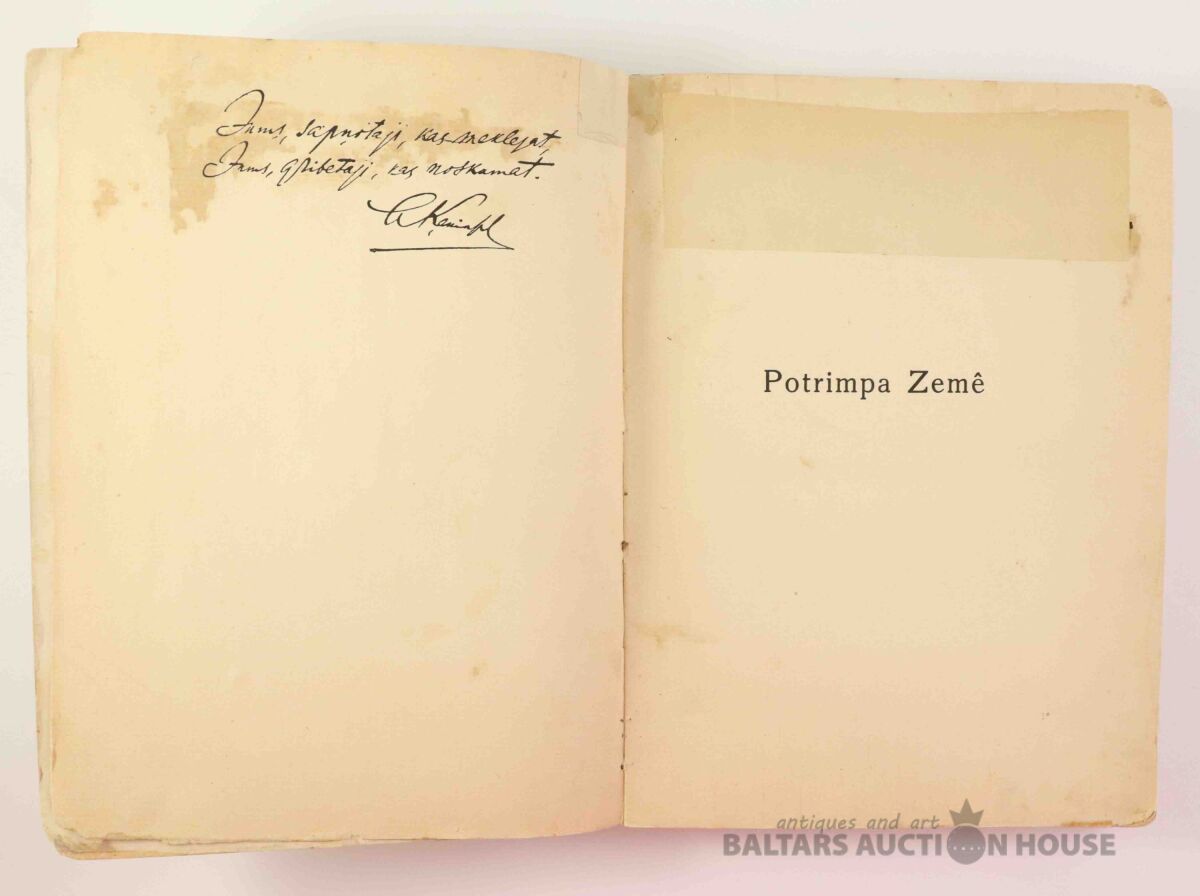 Jums, sapņotāji, kas meklejat,
Jums, gribētāji, kas noskumāt.
Potrimpa Zemê
antiques and art
BALTARS AUCTION HOUSE